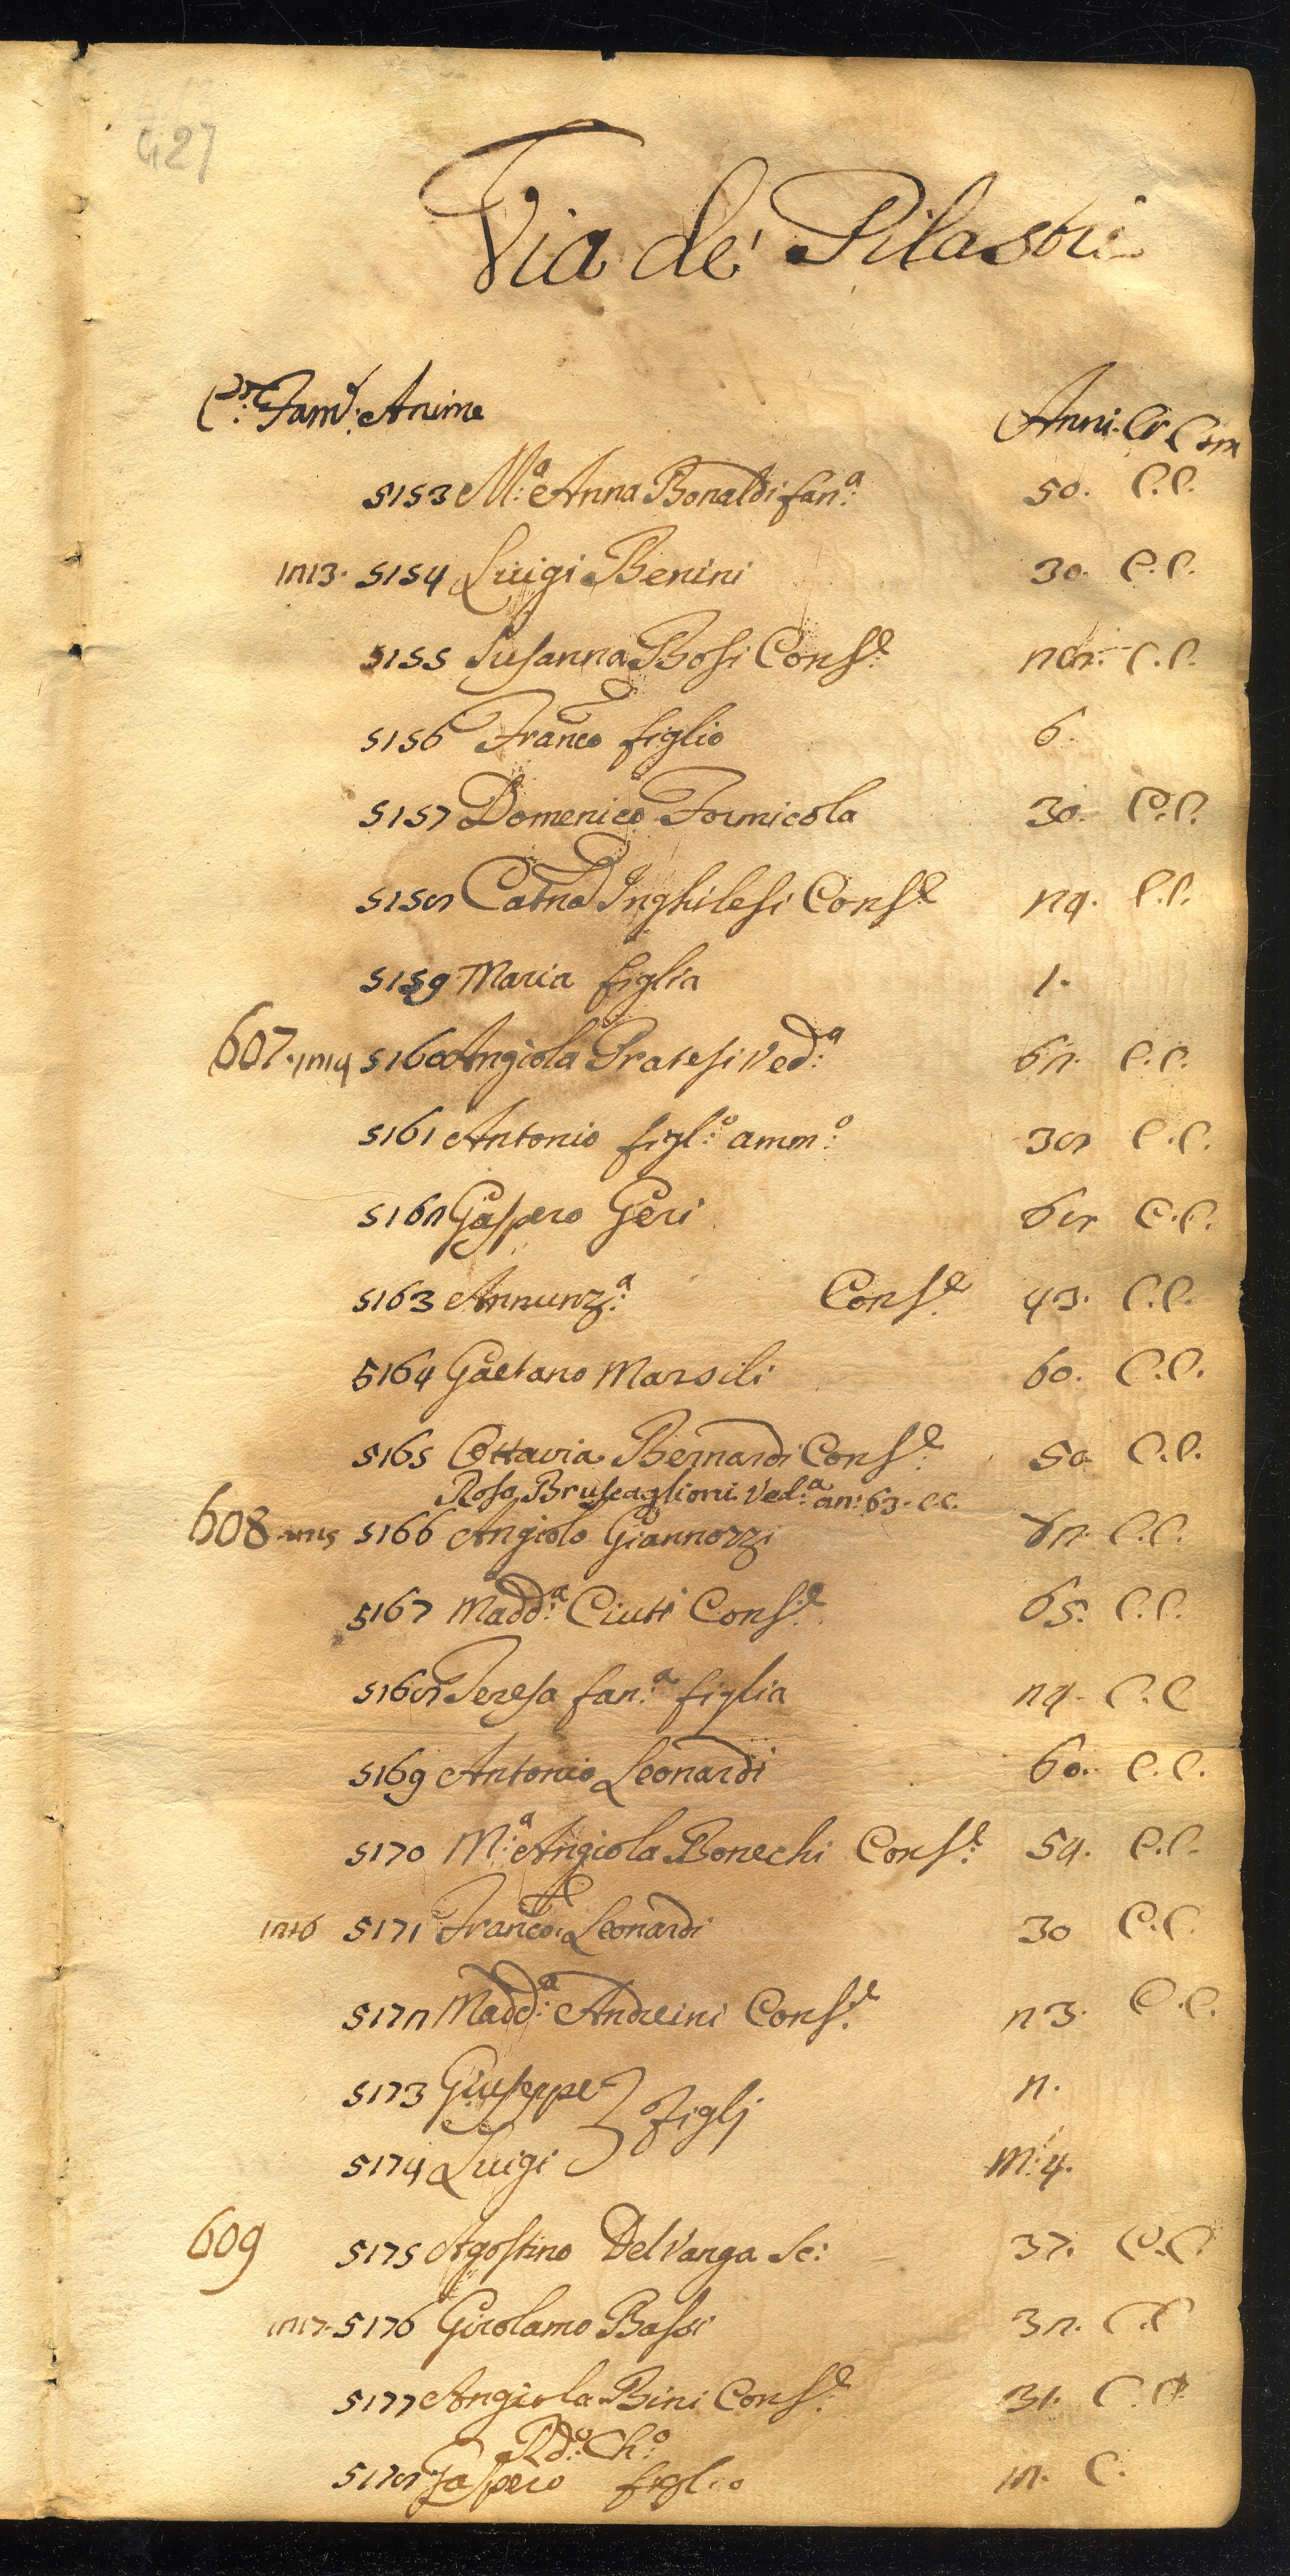 427
Via de' Pilastri
C.e Fam.e Anime Anni. Cr Com
5153 M.a Anna Bonaldi fan.a 50. C.C.
1213. 5154 Luigi Benini 30. C.C.
5155 Susanna Bosi Cons.e 28. C.C.
5156 Franco figlio 6.
5157 Domenico Formicola 30. C.C.
5158 Catna Inghilesi Cons.e 24. C.C.
5159 Maria figlia 1.
607. 1214 5160 Angiola Pratesi Ved.a 62. C.C.
5161 Antonio figl.o amm.o 38 C.C.
5162 Gaspero Geri 68 C.C.
5163 Annunz.a Cons.e 43. C.C.
5164 Gaetano Marsili 60. C.C.
5165 Ottavia Bernardi Cons.e 50 C.C.
Rosa Bruscaglioni Ved.a an: 63. C.C.
608 1215 5166 Angiolo Giannozzi C.C.
5167 Madd.a Ciuti Cons.e 65. C.C.
5168 Teresa fan.a figlia 24. C.C
5169 Antonio Leonardi 60. C.C.
5170 M.a Angiola Bonechi Cons.e 54. C.C.
1216 5171 Franco Leonardi 30 C.C.
5172 Madd.a Andreini Cons.e 23. C.C.
5173 Giuseppe } figlj 2.
5174 Luigi M. 4.
609 5175 Agostino Del Vanga Sc: 37. C.C.
1217. 5176 Girolamo Bassi 32. C.C
5177 Angiola Bini Cons.e 31. C.C.
Rd.o Ch.o
5178 Gaspero figlio 12. C.